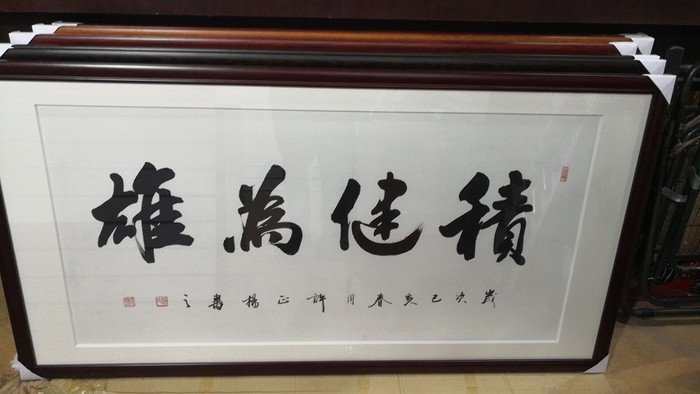 積健為雄
歲次己亥春月許正楊書之